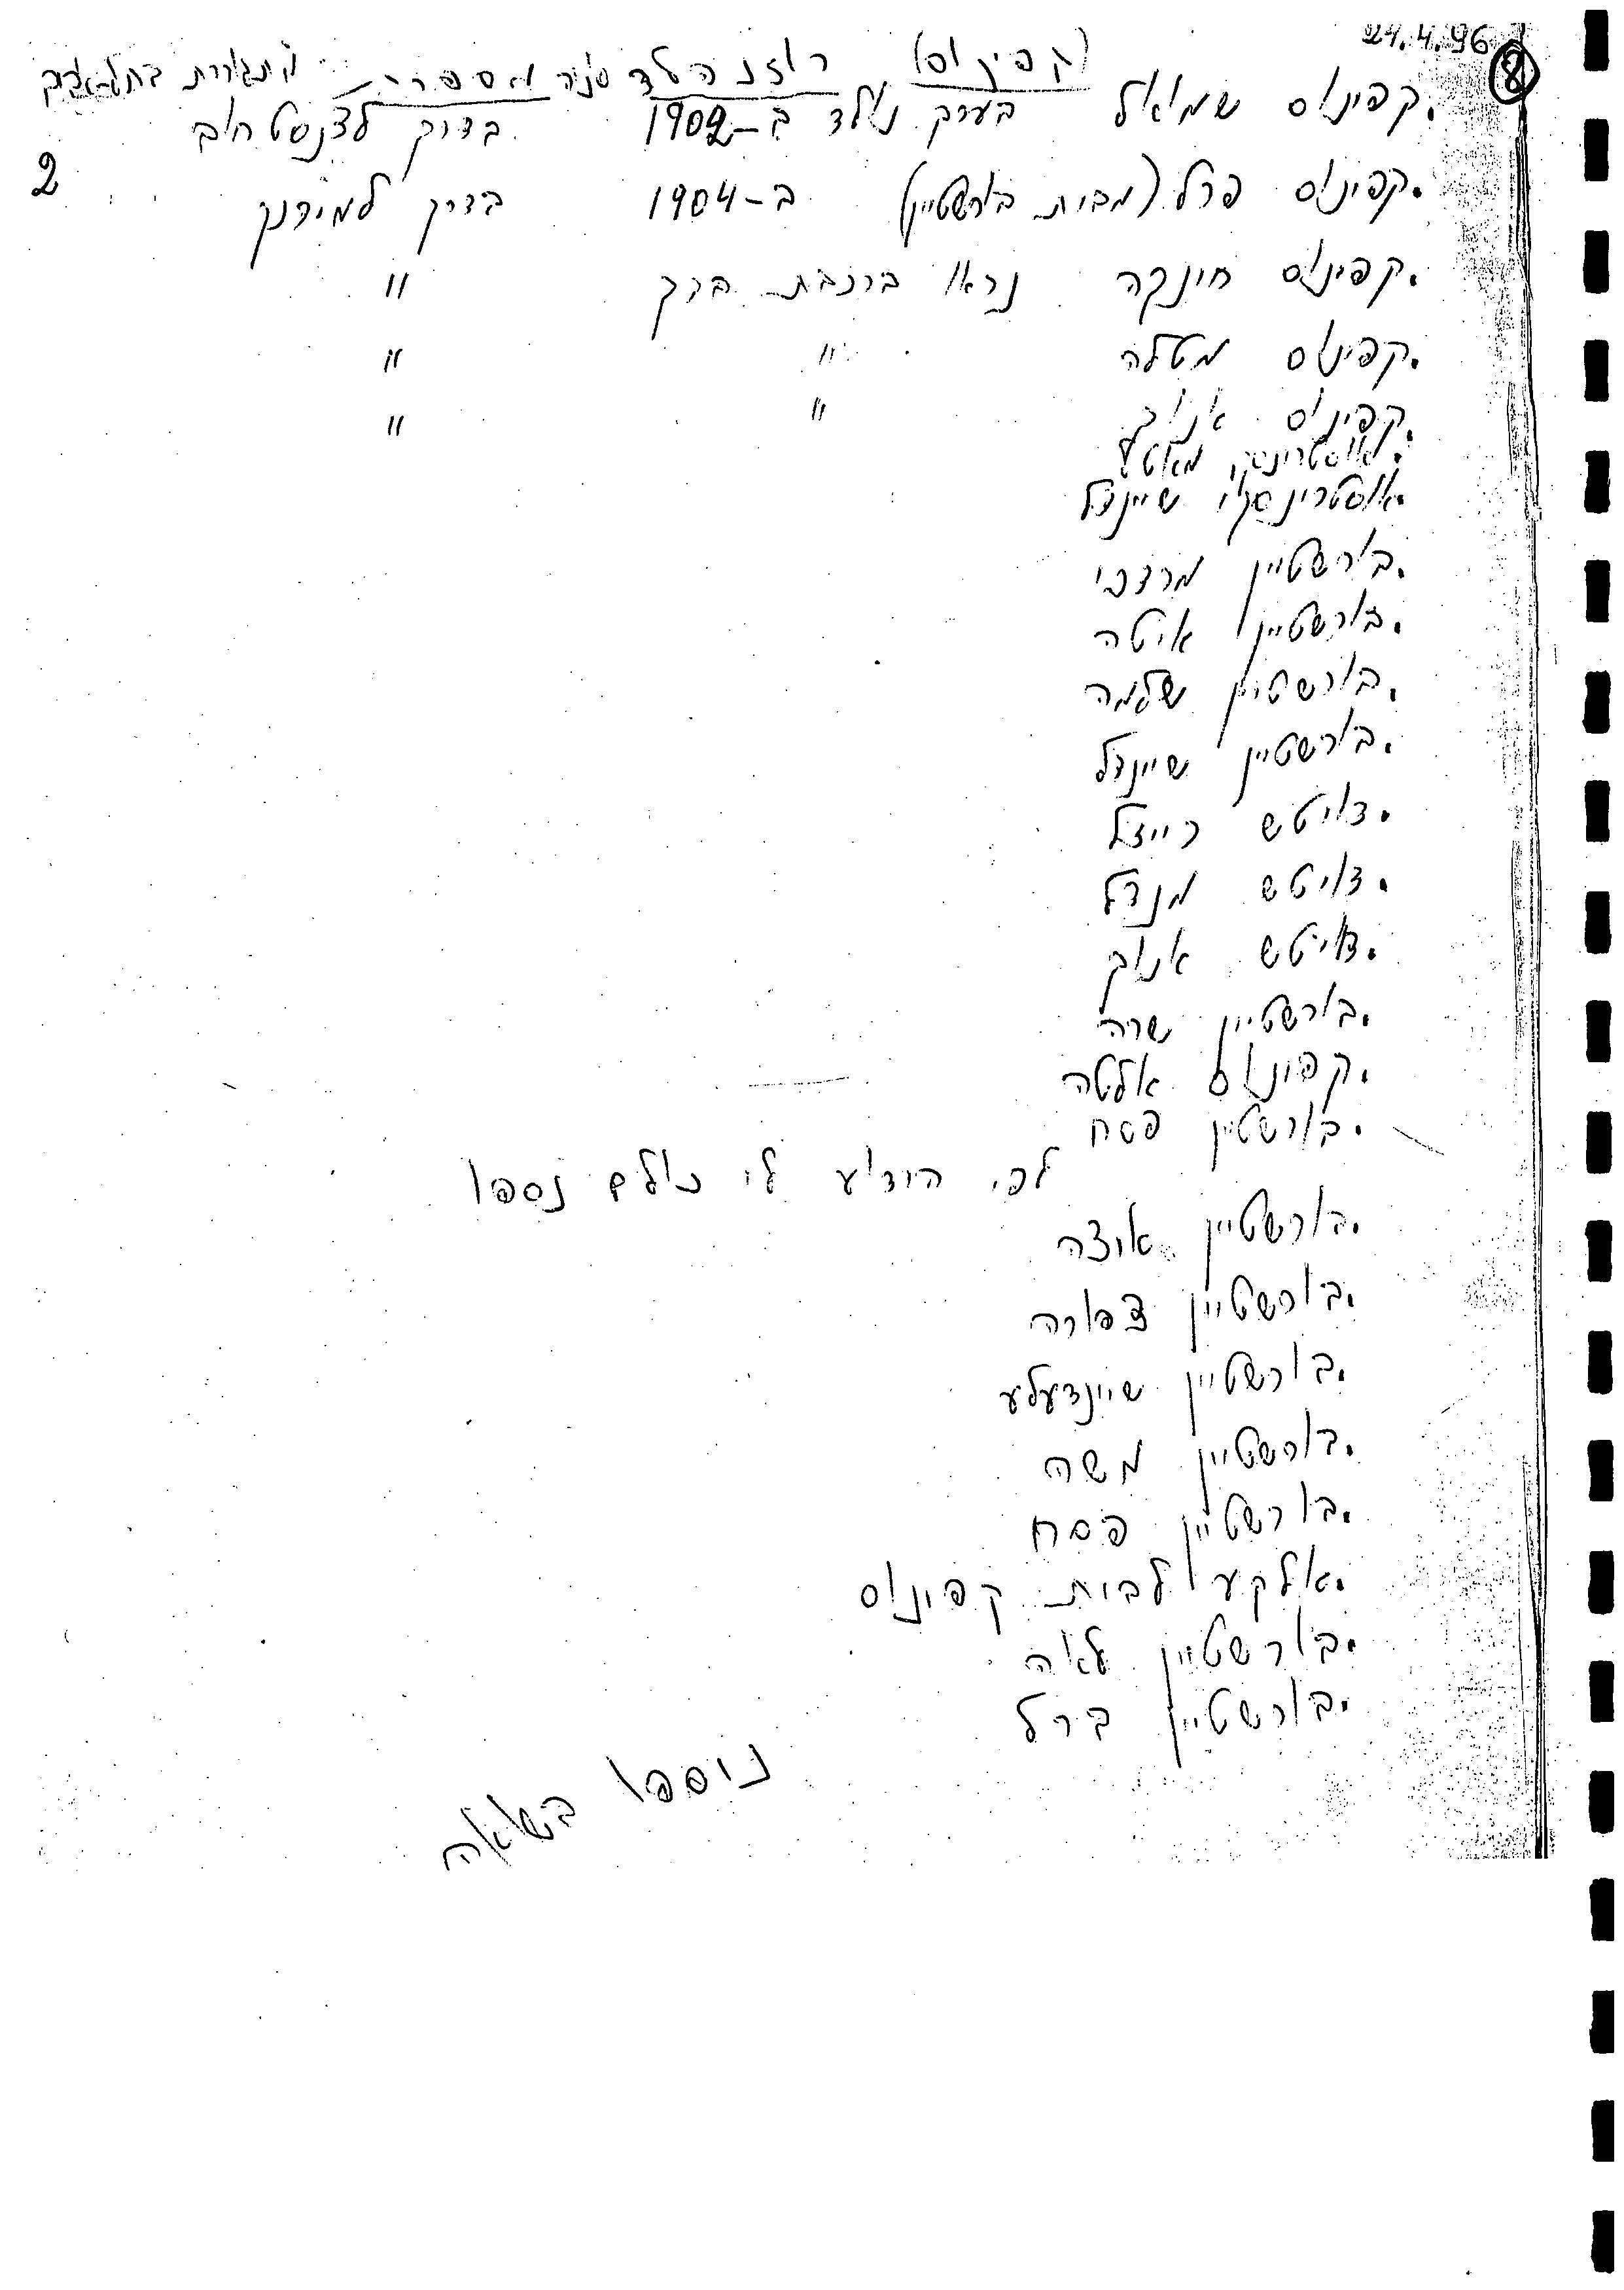 24.4.96
8
(קפינוס) רוזנפלד סניה מספרי מתגוררת בתל-אביב
.קפינוס שמואל בערך נולד ב-1902 בדרך לצנסטחוב
2
.קפינוס פרל (מבית בורשטיין) ב-1904 בדרך למידנק
.קפינוס חינקה נראו ברכבת בדרך "
.קפינוס מטלה " "
.קפינוס " "
.אוסטרינסקי מאטע
.אוסטרינסקי שיינדל
.בורשטיין מרדכי
.בורשטיין איטה
.בורשטיין שלמה
.בורשטיין שיינדל
.דויטש רייזל
.דויטש מנדל
.דויטש
.בורשטיין שרה
.קפינוס אלטה
.בורשטיין פסח
לפי הידוע לי כולם נספו
.בורשטיין איצה
.בורשטיין צפורה
.בורשטיין שיינדעלע
.בורשטיין משה
.בורשטיין פסח
.אלקע לבית קפינוס
.בורשטיין לאה
.בורשטיין ברל
ניספו בשואה